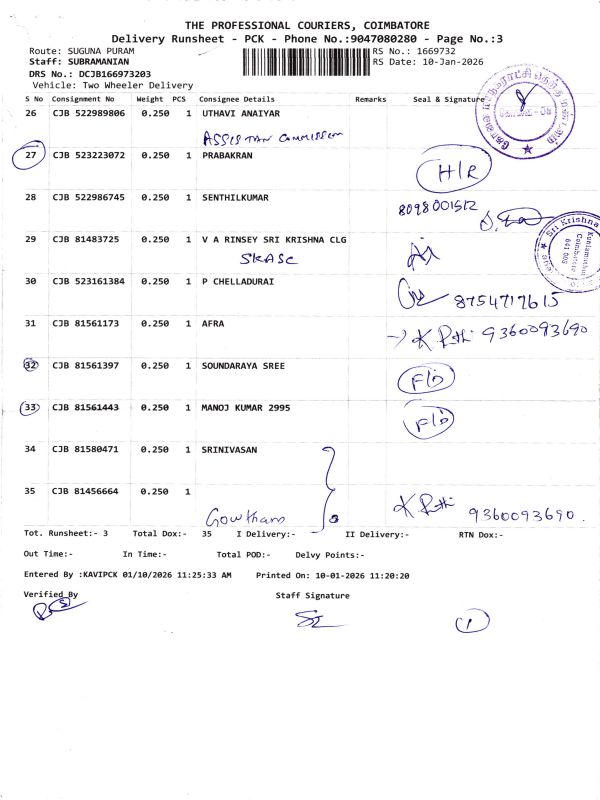 THE PROFESSIONAL COURIERS, COIMBATORE
Delivery Runsheet - PCK - Phone No.:9047080280 - Page No.:3
Route: SUGUNA PURAM
RS No.: 1669732
Staff: SUBRAMANIAN
RS Date: 10-Jan-2026
DRS No.: DCJB166973203
Vehicle: Two Wheeler Delivery
S No Consignment No Weight PCS Consignee Details Remarks Seal & Signature
26 CJB 522989806 0.250 1 UTHAVI ANAIYAR
27 CJB 523223072 0.250 1 PRABAKRAN
H/R
28 CJB 522986745 0.250 1 SENTHILKUMAR
8098001512
29 CJB 81483725 0.250 1 V A RINSEY SRI KRISHNA CLG
SKASC
Sri Krishna
Coimbatore
641 008
30 CJB 523161384 0.250 1 P CHELLADURAI
8754717615
31 CJB 81561173 0.250 1 AFRA
9360093690
32 CJB 81561397 0.250 1 SOUNDARAYA SREE
F/D
33 CJB 81561443 0.250 1 MANOJ KUMAR 2995
F/D
34 CJB 81580471 0.250 1 SRINIVASAN
35 CJB 81456664 0.250 1
Gowtham
9360093690.
Tot. Runsheet:- 3 Total Dox:- 35 I Delivery:- II Delivery:- RTN Dox:-
Out Time:- In Time:- Total POD:- Delvy Points:-
Entered By :KAVIPCK 01/10/2026 11:25:33 AM Printed On: 10-01-2026 11:20:20
Verified By Staff Signature
1